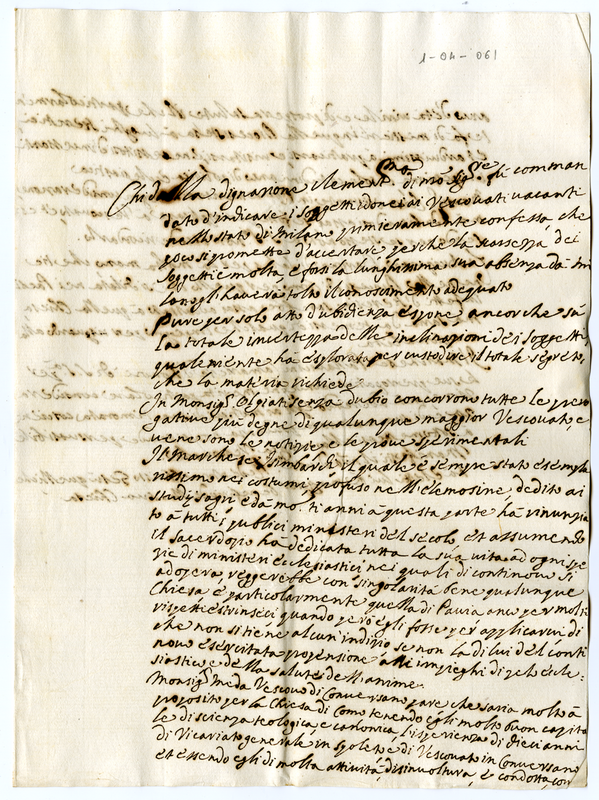 1-04-061
Chi dalla dignazione clement.ma di mo. Sig.re fu comman
dato d'indicare i soggetti idonei ai Vescovati vacanti
nello stato di Milano primieramente confessa, che
poco si promette d'accertare, perche la scarsezza dei
soggetti è molta, e forsi la lunghissima sua absenza da Mi
lano gli haverà tolto il conoscimento adequato
Pure per solo atto d'ubidienza espone, ancorche sà
la totale incertezza delle inclinazioni dei soggetti
qualeniente hà esplorata per custodire il totale segreto,
che la materia richiede
In Monsig.r Olgiati senza dubio concorrono tutte le prero
gative più degne di qualunque maggior Vescovato, e
ve ne sono le notizie, e le prove sperimentali
Il Marchese Isimbardi il quale è sempre stato esempla
rissimo nei costumi, profuso nelle elemosine, dedito ai
studij sagri, e dà mo. ti anni à questa parte hà rinunzia
to à tutti i publici ministeri del secolo, et assumendo
il sacerdozio hà dedicata tutta la sua vita ad ogni spe
zie di ministeri ecclesiastici nei quali di continouo si
adopera, reggerebbe con singolarità bene qualunque
Chiesa, e particolarmente quella di Pavia anco per molti
rispetti estrinseci quando però egli fosse per applicarvi di
che non si tiene alcun indizio se non la di lui del conti
nouo esercitata propensione alli impieghi di zelo eccle:
siastico, e della salute dell'anime.
Monsig.r Meda Vescovo di Conversano pare che saria molto à
proposito per la Chiesa di Como tenendo egli molto buon capita
le di scienza teologica, e canonica, l'isperienza di dieci anni
di Vicariato generale in Spoleto, e di Vescovato in Conversano
et essendo egli di molta attività, disinvoltura, e condotta, con